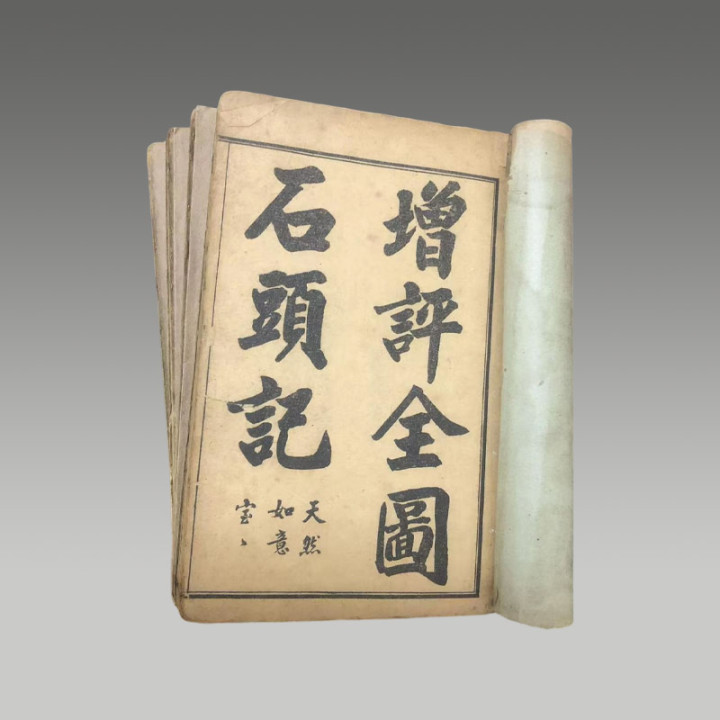 增評全圖
石頭記
天然
如意
宝〻